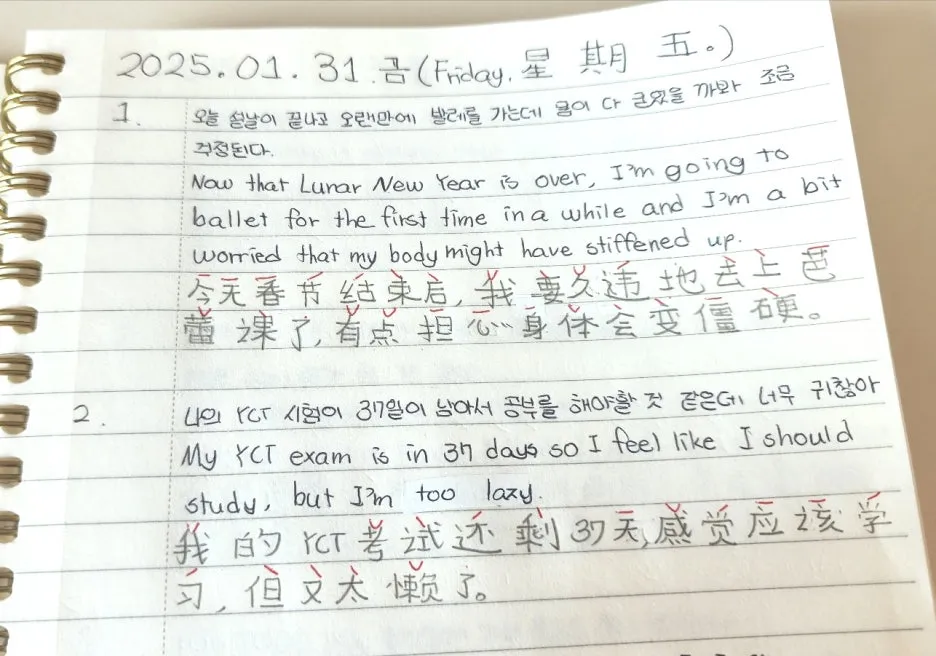 2025.01.31.금(Friday. 星期五。)
1. 오늘 설날이 끝나고 오랜만에 발레를 가는데 몸이 다 굳었을 까봐 조금
걱정된다.
Now that Lunar New Year is over, I'm going to
ballet for the first time in a while and I'm a bit
worried that my body might have stiffened up.
今天春节结束后,我要久违地去上芭
蕾课了,有点担心身体会变僵硬。
2. 나의 YCT 시험이 37일이 남아서 공부를 해야할 것 같은데 너무 귀찮아
My YCT exam is in 37 days so I feel like I should
study, but I'm too lazy.
我的YCT考试还剩37天,感觉应该学
习,但又太懒了。